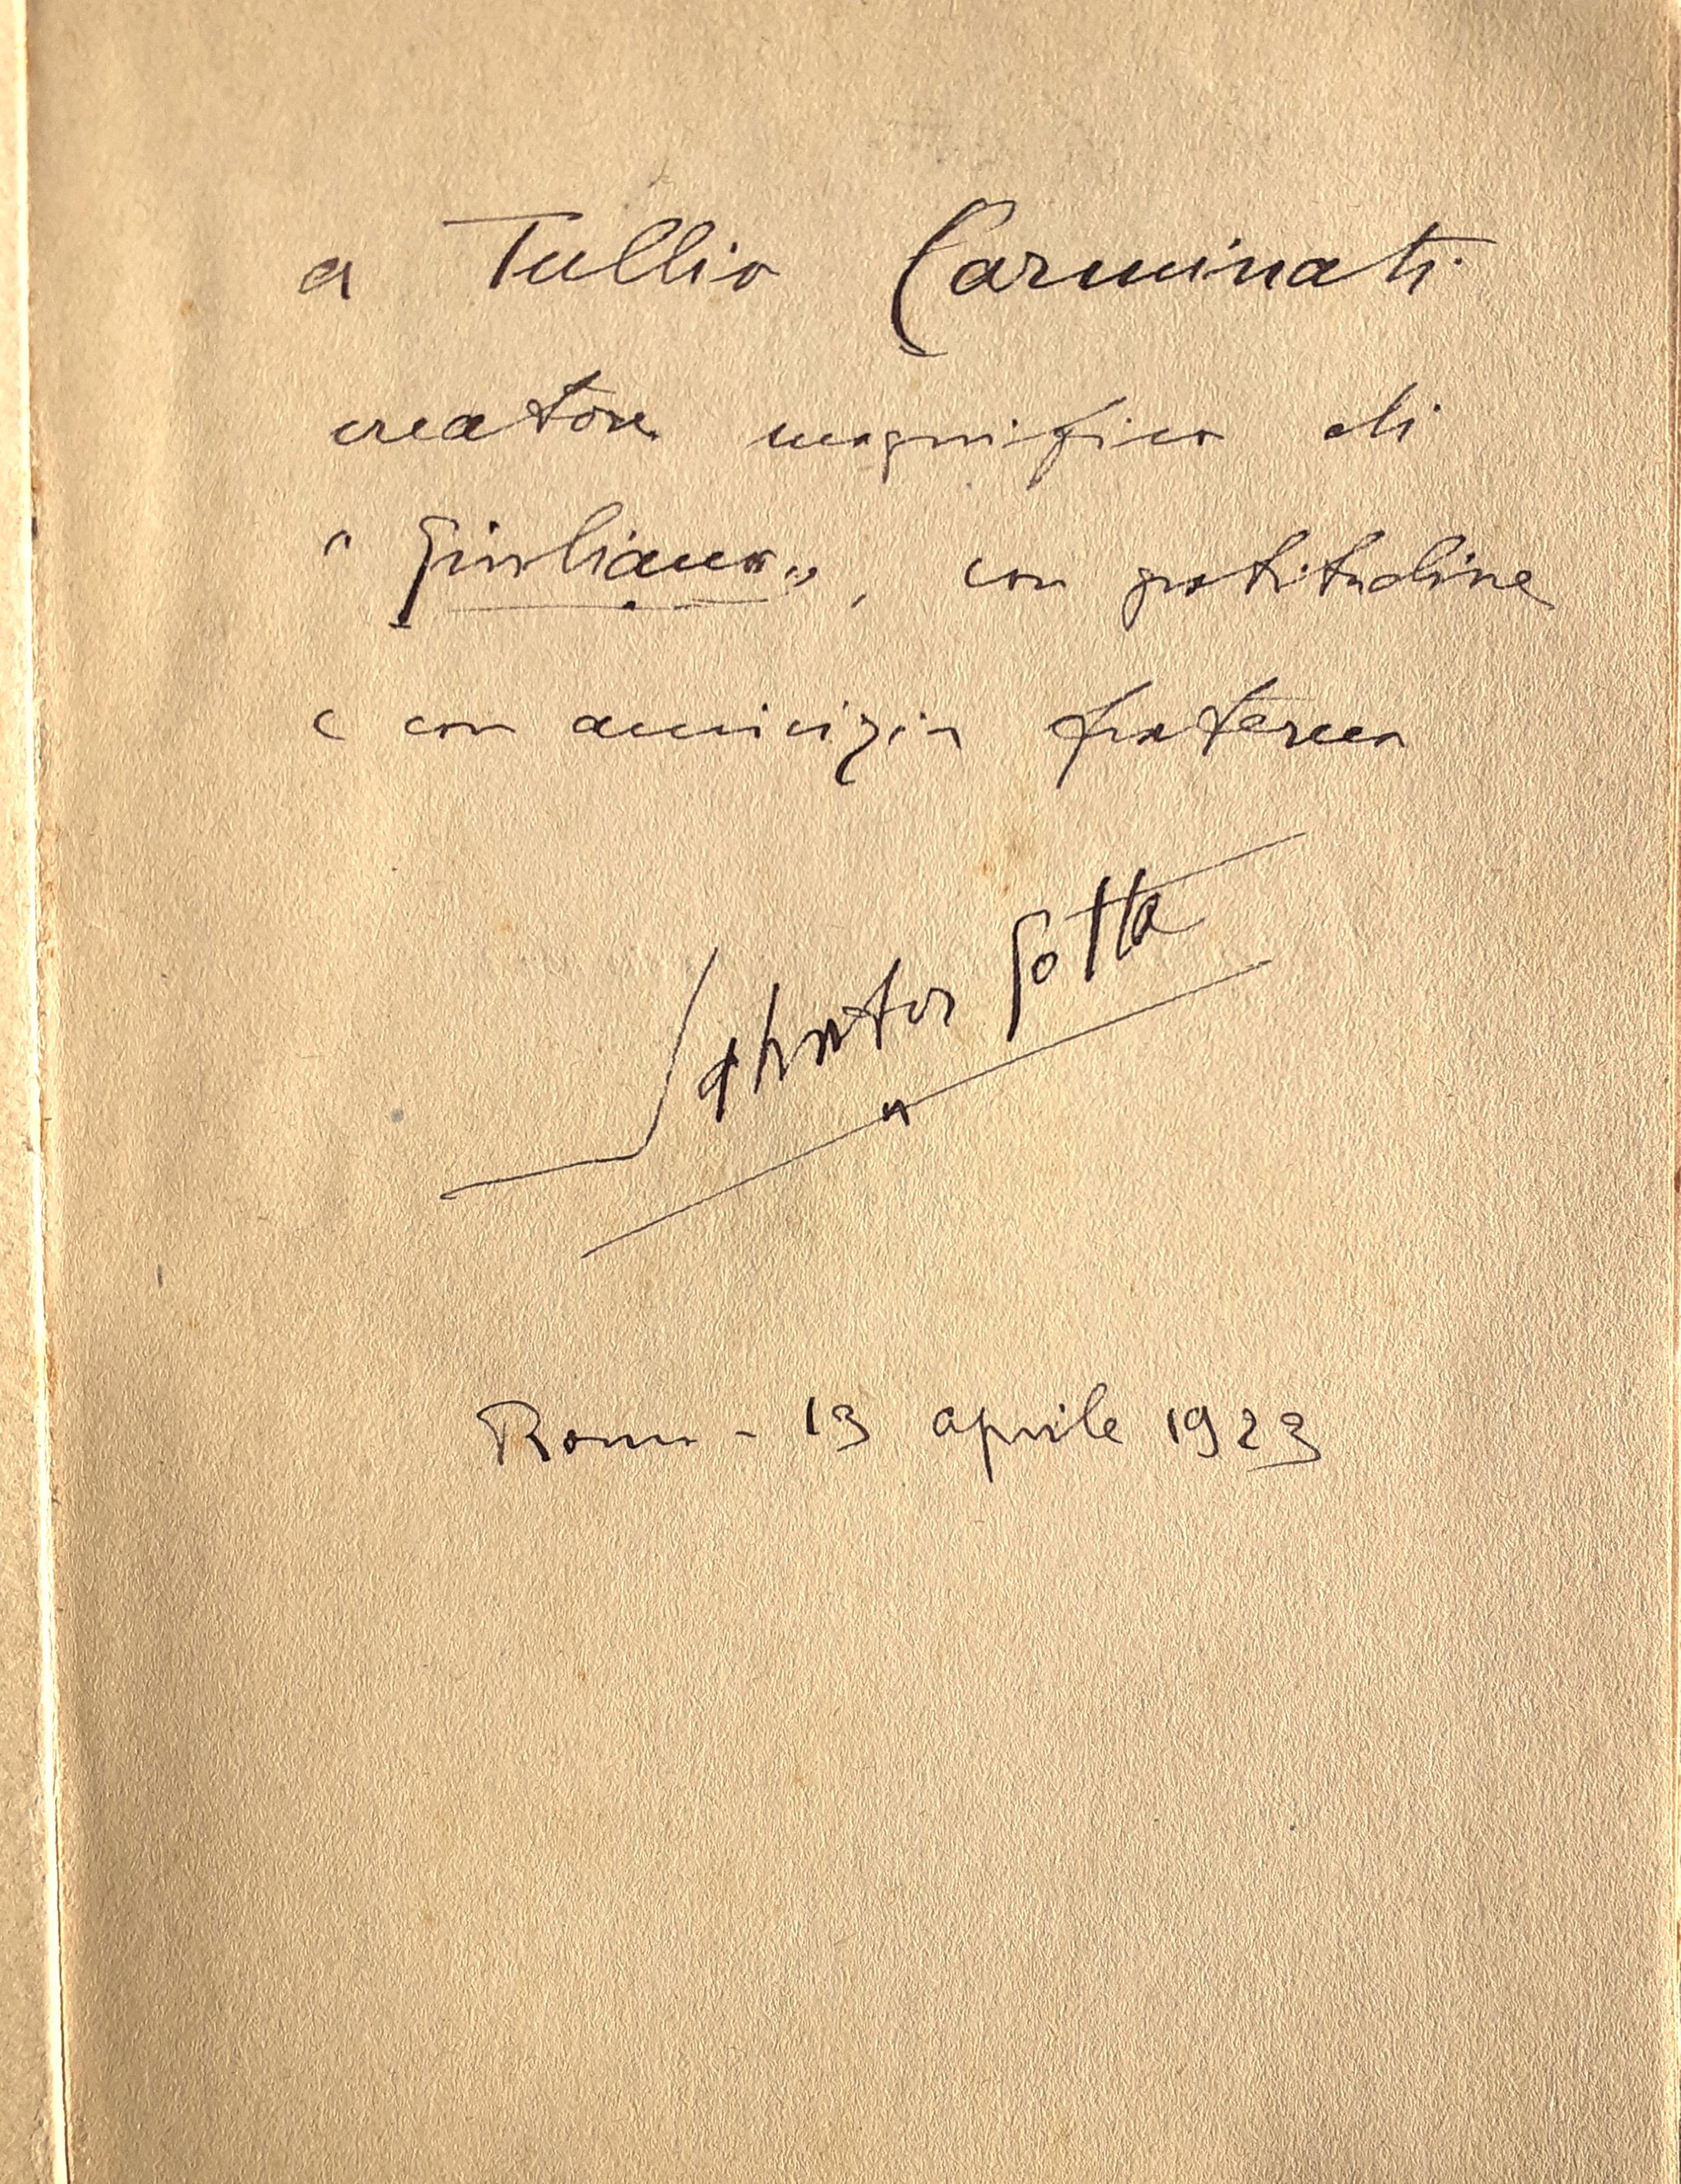 a Tullio Carminati
creatore magnifico di
"Giuliano", con gratitudine
e con amicizia fraterna
Salvator Gotta
Roma - 13 aprile 1923